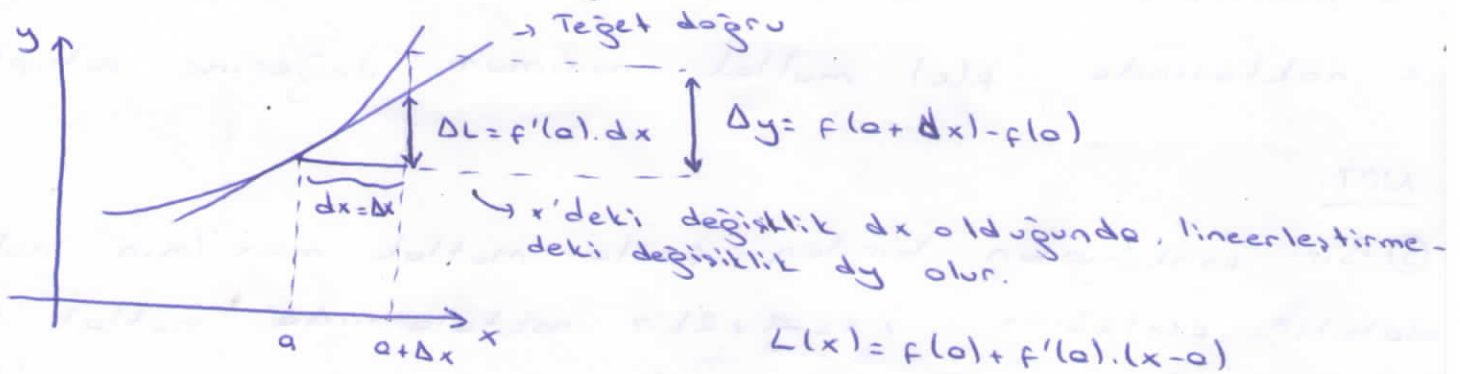 y
→ Teğet doğru
ΔL = f'(a).dx
Δy = f(a+dx)-f(a)
dx=Δx
↳ x'deki değişiklik dx olduğunda, lineerleştirme-
deki değişiklik dy olur.
a
a+Δx
x
L(x) = f(a) + f'(a).(x-a)